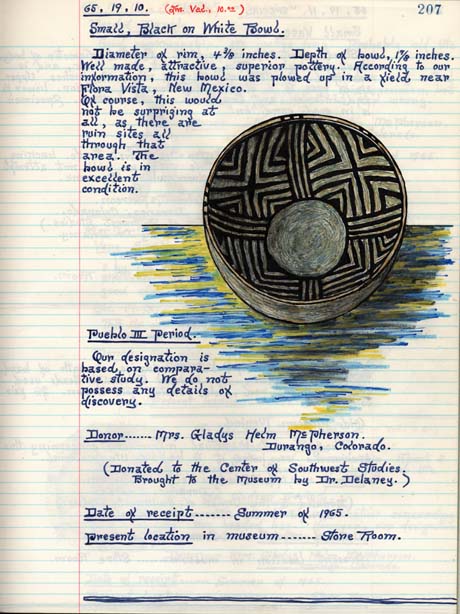 65, 19, 10. (Jfm. Val., 10.00) 207
Small, Black on White Bowl.
Diameter of rim, 4 3/8 inches. Depth of bowl, 1 7/8 inches.
Well made, attractive, superior pottery. According to our
information, this bowl was plowed up in a field near
Flora Vista, New Mexico.
Of course, this would
not be surprizing at
all, as there are
ruin sites all
through that
area. The
bowl is in
excellent
condition.
Pueblo III Period.
Our designation is
based on compara-
tive study. We do not
possess any details of
discovery.
Donor....... Mrs. Gladys Helm McPherson.
Durango, Colorado.
(Donated to the Center of Southwest Studies.
Brought to the Museum by Dr. Delaney.)
Date of receipt....... Summer of 1965.
Present location in museum....... Store Room.